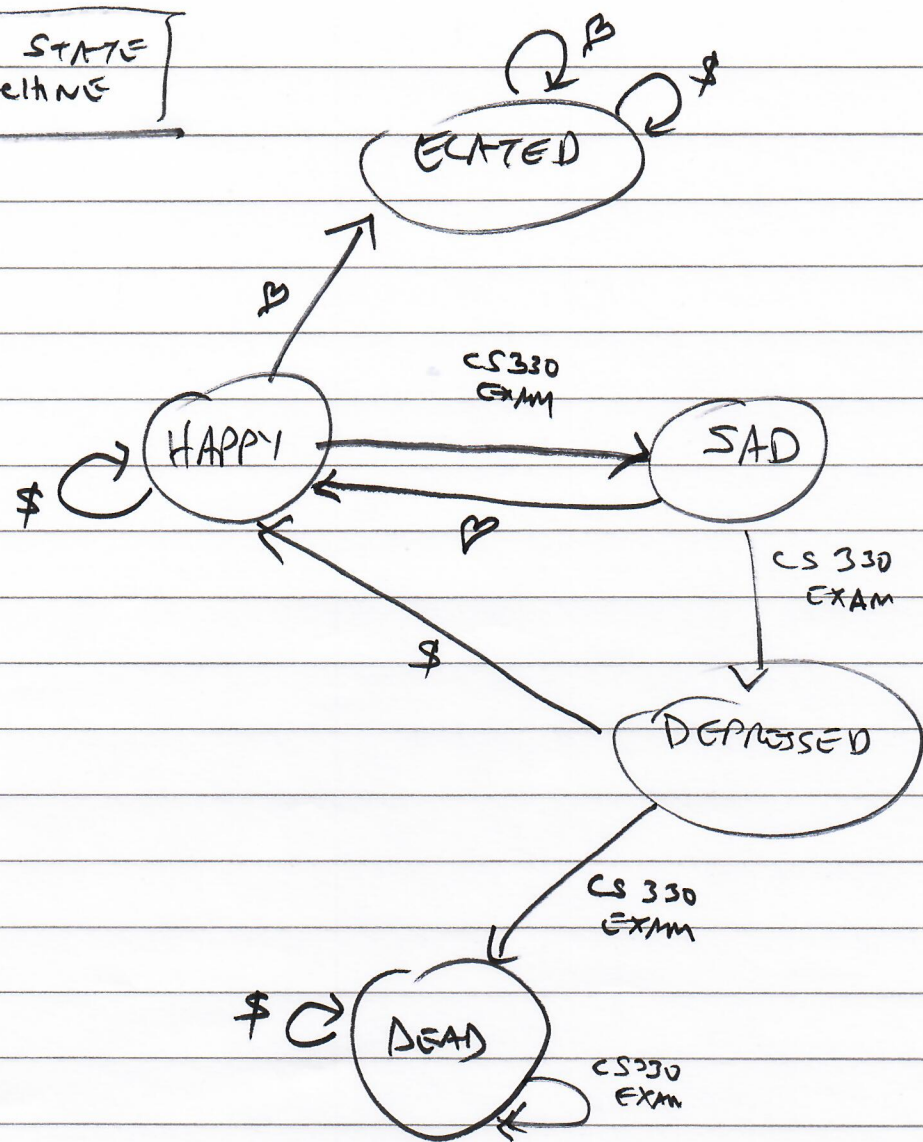 STATE
CHINE
♥
$
ELATED
♥
CS330
EXAM
HAPPY
SAD
$
♥
CS 330
EXAM
$
DEPRESSED
CS 330
EXAM
$
DEAD
CS330
EXAM